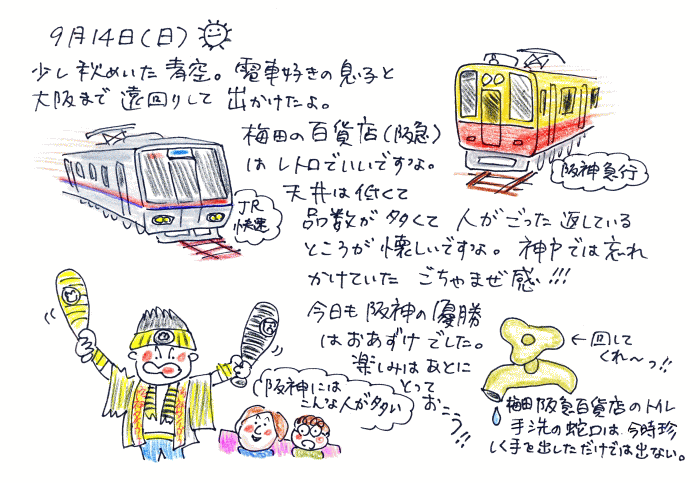 9月14日(日)
少し秋めいた青空。電車好きの息子と
大阪まで遠回りして出かけたよ。
梅田の百貨店(阪急)
はレトロでいいですよ。
天井は低くて
品数が多くて人がごった返している
ところが懐しいですよ。神戸では忘れ
かけていたごちゃまぜ感!!!
今日も阪神の優勝
はおあずけでした。
楽しみはあとに
とって
おこう!!
JR
快速
阪神急行
阪神には
こんな人が多い
←回して
くれ〜っ!!
梅田阪急百貨店のトイレ
手洗の蛇口は、今時珍
しく手を出しただけでは出ない。